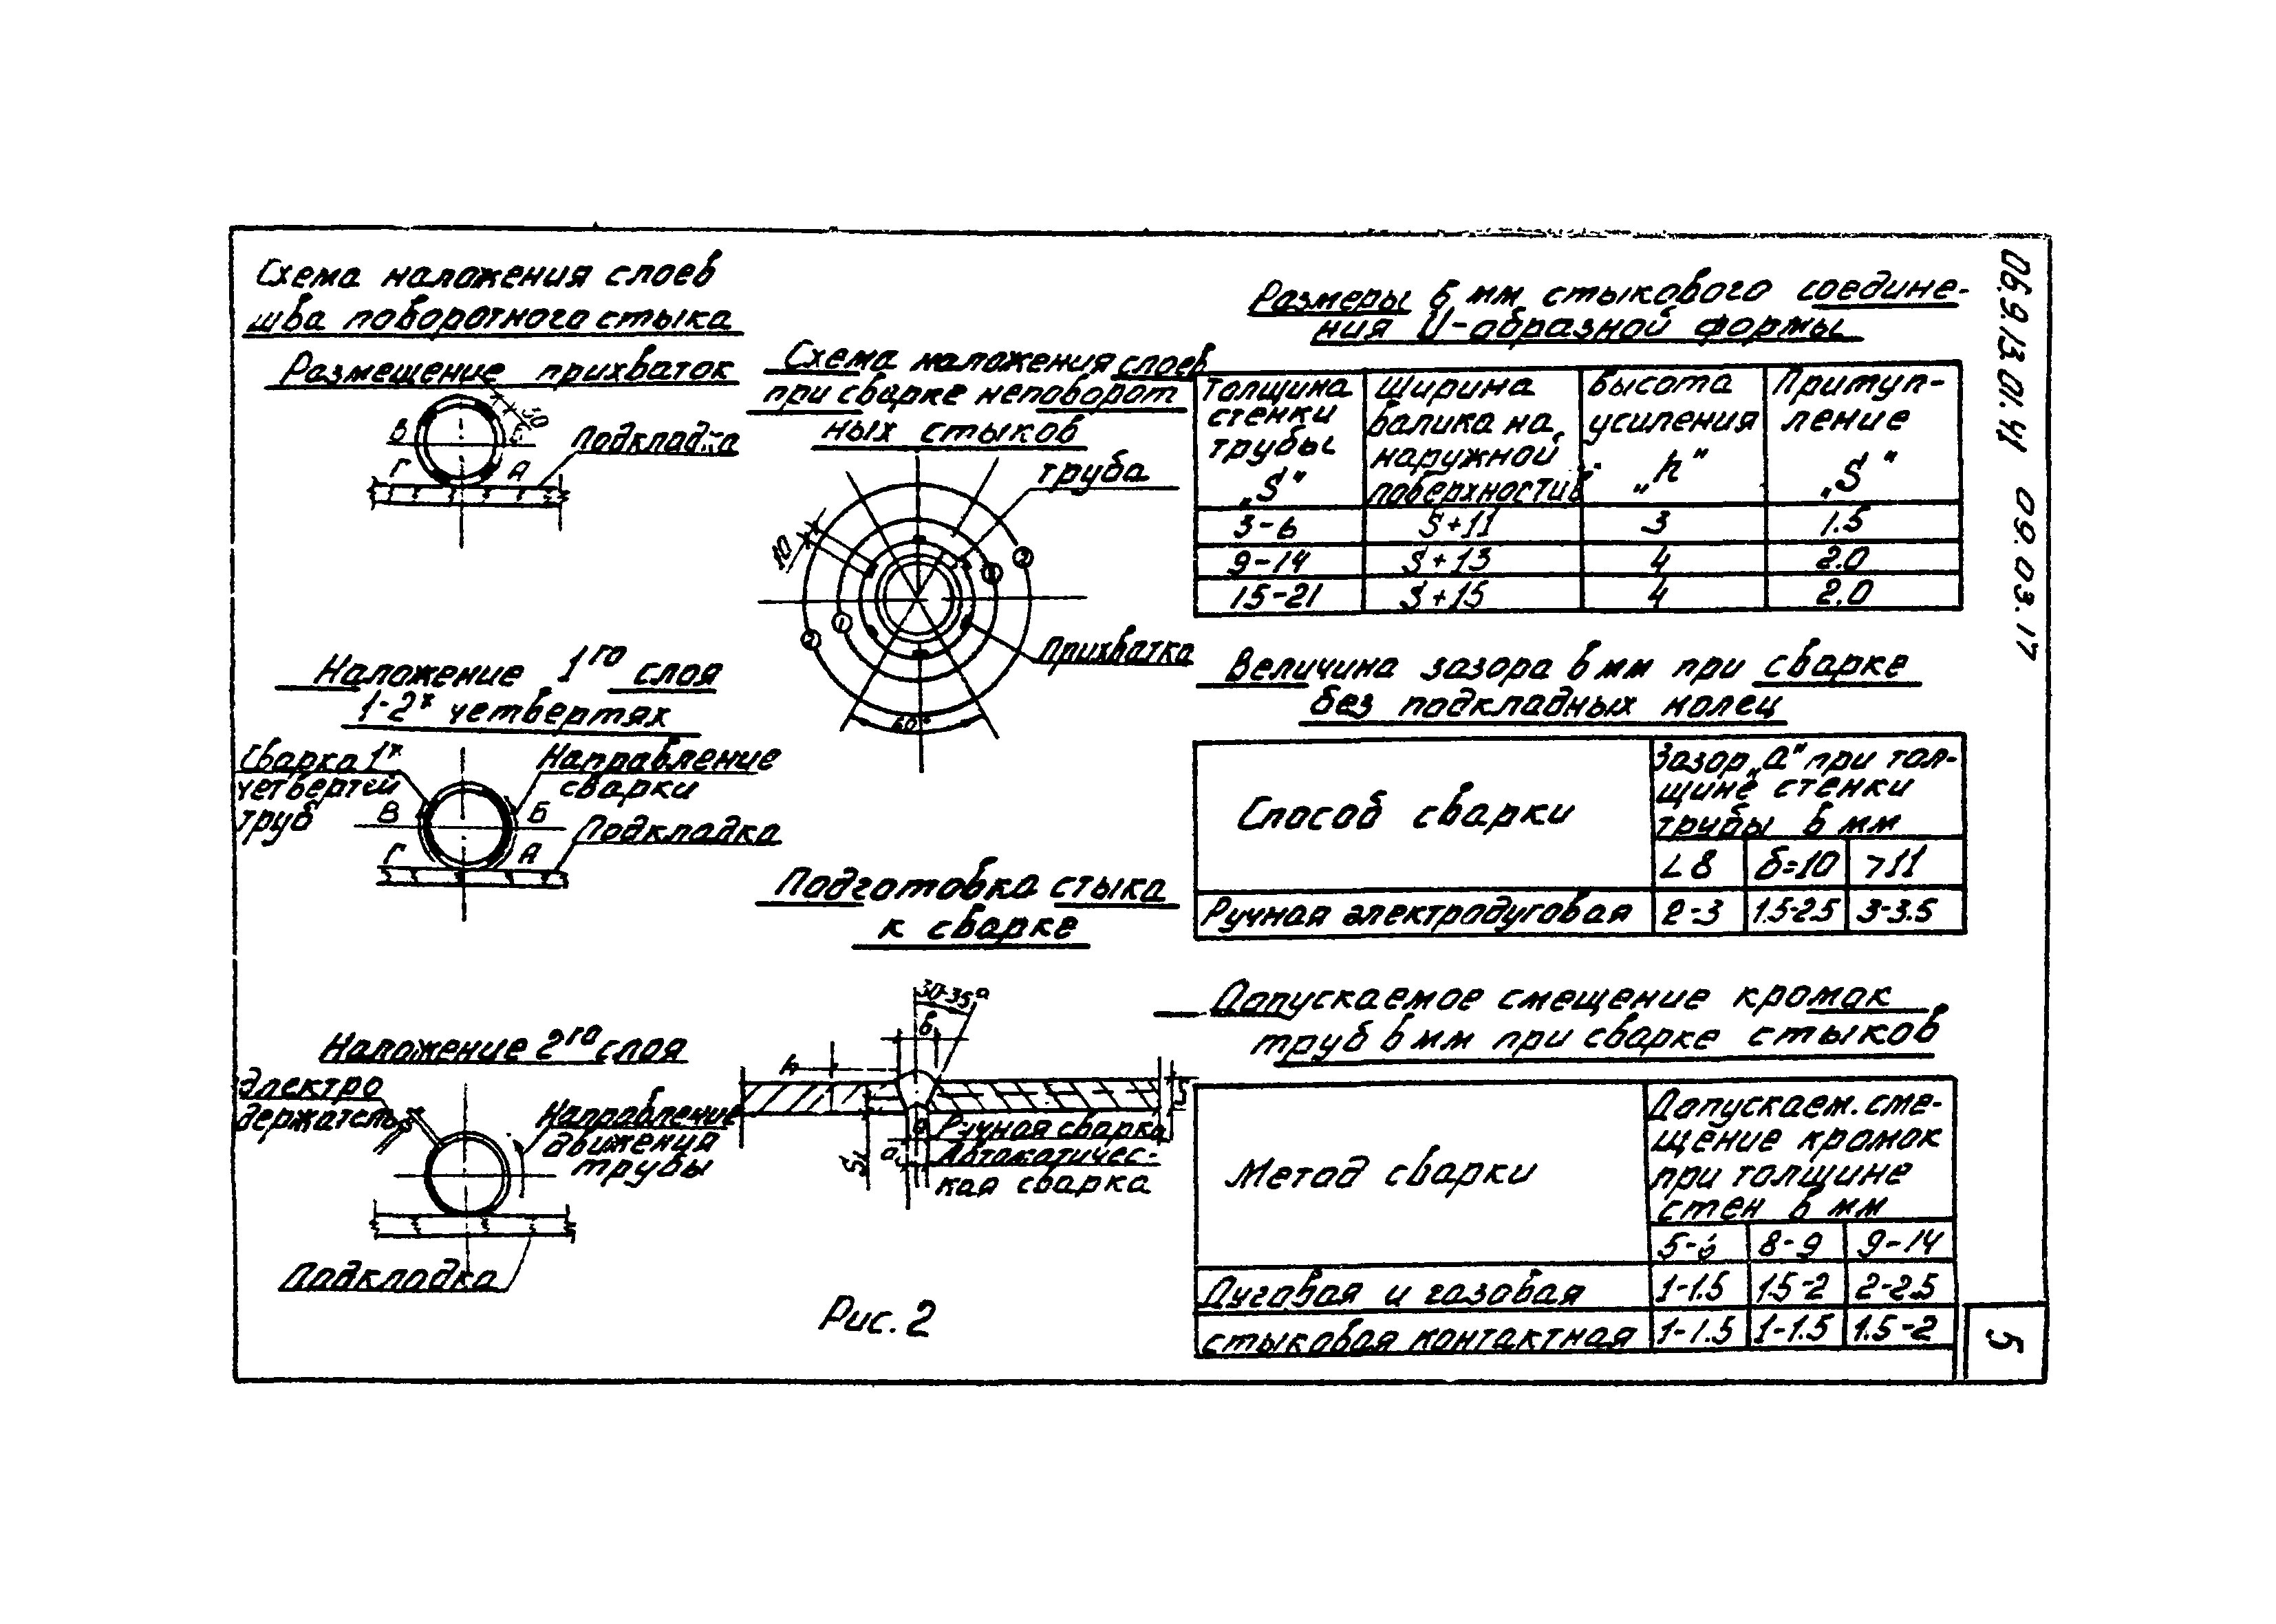 Схема наложения слоев
шва поворотного стыка
Размещение прихваток
50
В
Г
А
Подкладка
Наложение 1го слоя
1-2х четвертях
Сварка 1х
четвертей
труб
Направление
сварки
В
Б
Г
А
Подкладка
Наложение 2го слоя
Электро
держатель
Направление
движения
трубы
Подкладка
Схема наложения слоев
при сварке неповорот
ных стыков
труба
10
2
1
1
2
Прихватка
60°
Подготовка стыка
к сварке
30-35°
в
h
S
S1
а
Ручная сварка
а
Автоматичес-
кая сварка
Рис. 2
Размеры в мм стыкового соедине-
ния U-образной формы
Толщина стенки трубы „S" Ширина валика на наружной поверхности в Высота усиления „h" Притуп-ление „S"
3-6 S+11 3 1.5
9-14 S+13 4 2.0
15-21 S+15 4 2.0
Величина зазора в мм при сварке
без подкладных колец
Способ сварки
Зазор „а" при тол-
щине стенки
трубы в мм
< 8 б=10 >11
Ручная электродуговая 2-3 1.5-2.5 3-3.5
Допускаемое смещение кромак
труб в мм при сварке стыков
Метод сварки
Допускаем. сме-
щение кромок
при толщине
стен в мм
5-6 8-9 9-14
Дуговая и газовая 1-1.5 1.5-2 2-2.5
стыковая контактная 1-1.5 1-1.5 1.5-2
09.03.17
5